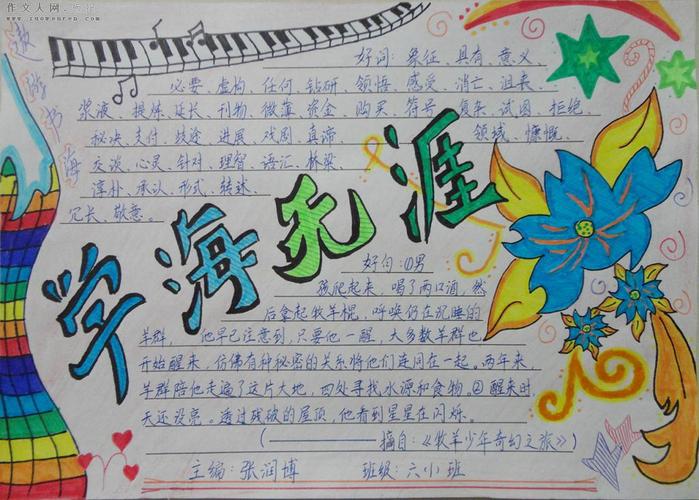 作文人网
www.zuowenren.com
遨游书海
好词：象征、具有、意义
必要、虚构、任何、钻研、领悟、感受、消亡、沮丧、
浆液、提炼、延长、刊物、微薄、资金、购买、符号、复杂、试图、拒绝、
秘决、支付、歧途、进展、戏剧、真谛、领域、慷慨、
交谈、心灵、针对、理智、语汇、桥梁、
淳朴、承认、形式、转述、
冗长、敬意。
学海无涯
好句：①男
孩爬起来，喝了两口酒，然
后拿起牧羊棍，呼唤仍在沉睡的
羊群，他早已注意到，只要他一醒，大多数羊群也
开始醒来，仿佛有种秘密的关系将他们连同在一起。两年来，
羊群陪他走遍了这片大地，四处寻找水源和食物。②醒来时
天还没亮。透过残破的屋顶，他看到星星在闪烁。
（————摘自：《牧羊少年奇幻之旅》）
主编：张润博 班级：六小班